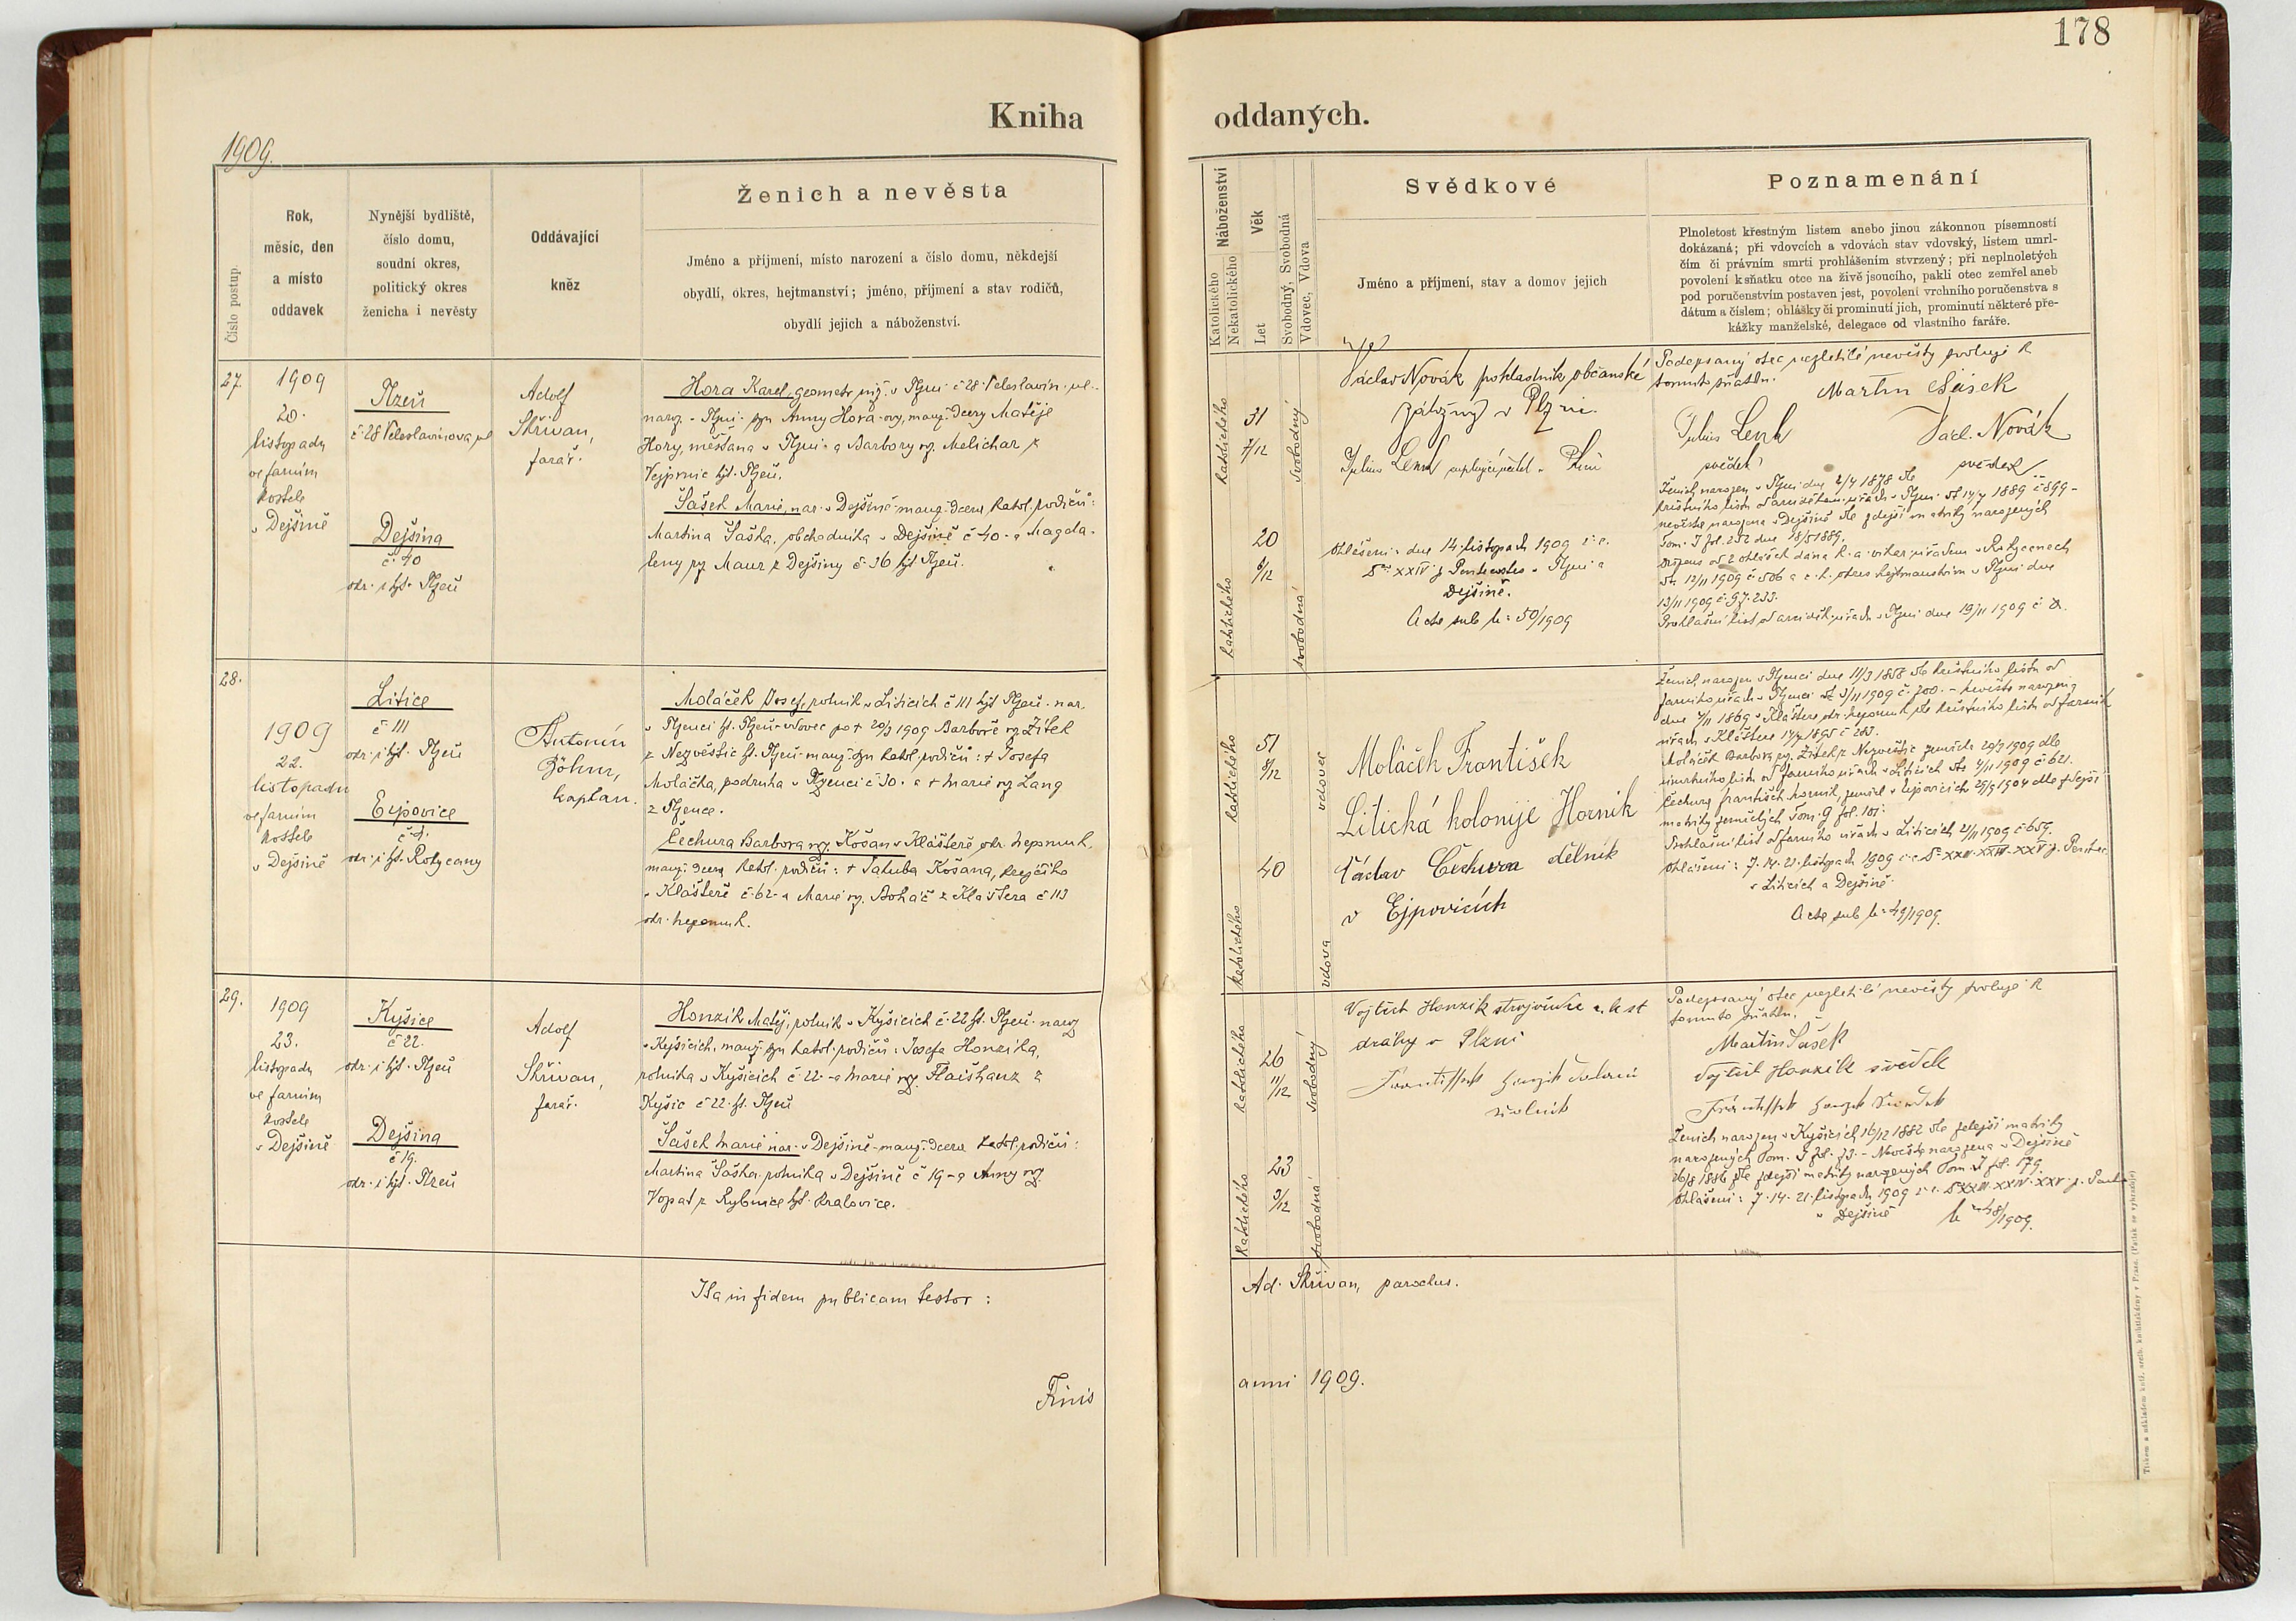 178
Kniha
oddaných.
1909.
Číslo postup.
Rok,
měsíc, den
a místo
oddavek
Nynější bydliště,
číslo domu,
soudní okres,
politický okres
ženicha i nevěsty
Oddávající
kněz
Ženich a nevěsta
Jméno a příjmení, místo narození a číslo domu, někdejší
obydlí, okres, hejtmanství; jméno, příjmení a stav rodičů,
obydlí jejich a náboženství.
27.
1909
20.
listopadu
ve farním
kostele
v Dejšině
Plzeň
č. 28 Veleslavínova ul
Dejšina
č. 40
okr. i hjt. Plzeň
Adolf
Skřivan,
farář.
Hora Karel, geometr v Plzni č 28 Veleslavín. ul.
naroz. v Plzni syn Anny Hora-ovy, manž. dcery Matěje
Hory, měšťana v Plzni a Barbory roz. Melichar z
Vejprnic hjt. Plzeň.
Šašek Marie, nar. v Dejšině manž. dcera katol. rodičů:
Martina Šaška, obchodníka v Dejšině č 40 a Magda-
leny roz Maur z Dejšiny č. 36 hjt Plzeň.
28.
1909
22.
listopadu
ve farním
kostele
v Dejšině
Litice
č 111
okr. i hjt. Plzeň
Ejpovice
okr. i hjt. Rokycany
Antonín
Böhm,
kaplan.
Moláček Josef, rolník v Liticích č 111 hjt Plzeň. nar.
vdovec po + 20/3 1909 Barboře roz Žítek
z Nezvěstic hjt. Plzeň manž. syn katol. rodičů: + Josefa
Moláčka, podruha č 30. a + Marie roz Lang
Čechura Barbora roz. Košan v Klášteře okr. Nepomuk.
manž. dcera katol. rodičů: + Jakuba Košana, krejčího
v Klášteře č. 62 a Marie roz. Boháč z Kláštera č 113
okr. Nepomuk.
29.
1909
23.
listopadu
ve farním
kostele
v Dejšině
Kyšice
č 22.
okr. i hjt. Plzeň
Dejšina
č 19.
okr. i hjt. Plzeň
Adolf
Skřivan,
farář.
Honzík Matěj, rolník v Kyšicích č. 22 hjt. Plzeň. naroz
v Kyšicích, manž. syn katol. rodičů: Josefa Honzíka,
rolníka v Kyšicích č 22. a Marie roz. Flaišhanz z
Kyšic č 22. hjt. Plzeň
Šašek Marie nar. v Dejšině manž. dcera katol. rodičů:
Martina Šaška, rolníka v Dejšině č 19 a Anny roz.
Vopat z Rybnice hjt. Kralovice.
Ita in fidem publicam testor:
Finis
Náboženství
Katolického
Nekatolického
Věk
Let
Svobodný, Svobodná
Vdovec, Vdova
Svědkové
Jméno a příjmení, stav a domov jejich
Poznamenání
Plnoletost křestným listem anebo jinou zákonnou písemností
dokázaná; při vdovcích a vdovách stav vdovský, listem umrl-
čím či právním smrti prohlášením stvrzený; při neplnoletých
povolení k sňatku otce na živě jsoucího, pakli otec zemřel aneb
pod poručenstvím postaven jest, povolení vrchního poručenstva s
dátum a číslem; ohlášky či prominutí jich, prominutí některé pře-
kážky manželské, delegace od vlastního faráře.
katolického
31
7/12
svobodný
katolického
20
6/12
svobodná
Václav Novák pokladník občanské
záložny v Plzni.
Julius Lenk
Ohlášeni: dne 14. listopadu 1909
Dejšině.
Acta sub № 50/1909
Podepsaný otec nezletilé nevěsty svoluje k
tomuto sňatku.
Martin Šašek
Julius Lenk
svědek
Václ. Novák
svědek
Ženich narozen v Plzni dne 2/7 1878 dle
křestního listu od arciděkan. úřadu v Plzni dt 14/7 1889 č 899 -
nevěsta narozena v Dejšině dle zdejší matriky narozených
Tom. I fol. 252 dne 18/5 1889.
Dispens od 2 ohlášek dána k. a. vikar. úřadem v Rokycanech
dt 12/11 1909 č 506 a c. k. okres hejtmanstvím v Plzni dne
13/11 1909
Prohlašní list od arciděk. úřadu v Plzni dne 19/11 1909
katolického
51
8/12
vdovec
katolického
40
vdova
Moláček František
Litická kolonije Horník
Václav Čechura dělník
v Ejpovicích
Ženich narozen dne 11/3 1858 dle křestního listu od
farního úřadu dt 3/11 1909 č. 700. - Nevěsta narozena
dne 7/11 1869 v Klášteře okr. Nepomuk dle křestního listu od farního
úřadu v Klášteře 14/7 1895 č 283.
Moláček Barbora roz. Žítek z Nezvěstic zemřela 20/3 1909 dle
úmrtního listu od farního úřadu v Liticích dto 4/11 1909 č 621.
Čechura František horník, zemřel v Ejpovicích 29/9 1904 dle zdejší
matriky zemřelých Tom. G fol. 101.
Prohlašní list od farního úřadu v Liticích 21/11 1909 č 659.
Ohlášeni: 7. 14. 21. listopadu 1909
v Liticích a Dejšině
Acta sub № 49/1909.
katolického
26
11/12
svobodný
katolického
23
3/12
svobodná
Vojtěch Honzík strojvůdce c. k. st
dráhy v Plzni
rolník
Podepsaný otec nezletilé nevěsty svoluje k
tomuto sňatku.
Martin Šašek
Vojtěch Honzík svědek
Ženich narozen v Kyšicích 16/12 1882 dle zdejší matriky
narozených Tom. I fol. 73. - Nevěsta narozena v Dejšině
26/8 1886 dle zdejší matriky narozených Tom. I fol. 179.
Ohlášeni: 7. 14. 21. listopadu 1909
v Dejšině
№ 48/1909.
Ad. Skřivan, parochus.
anni 1909.